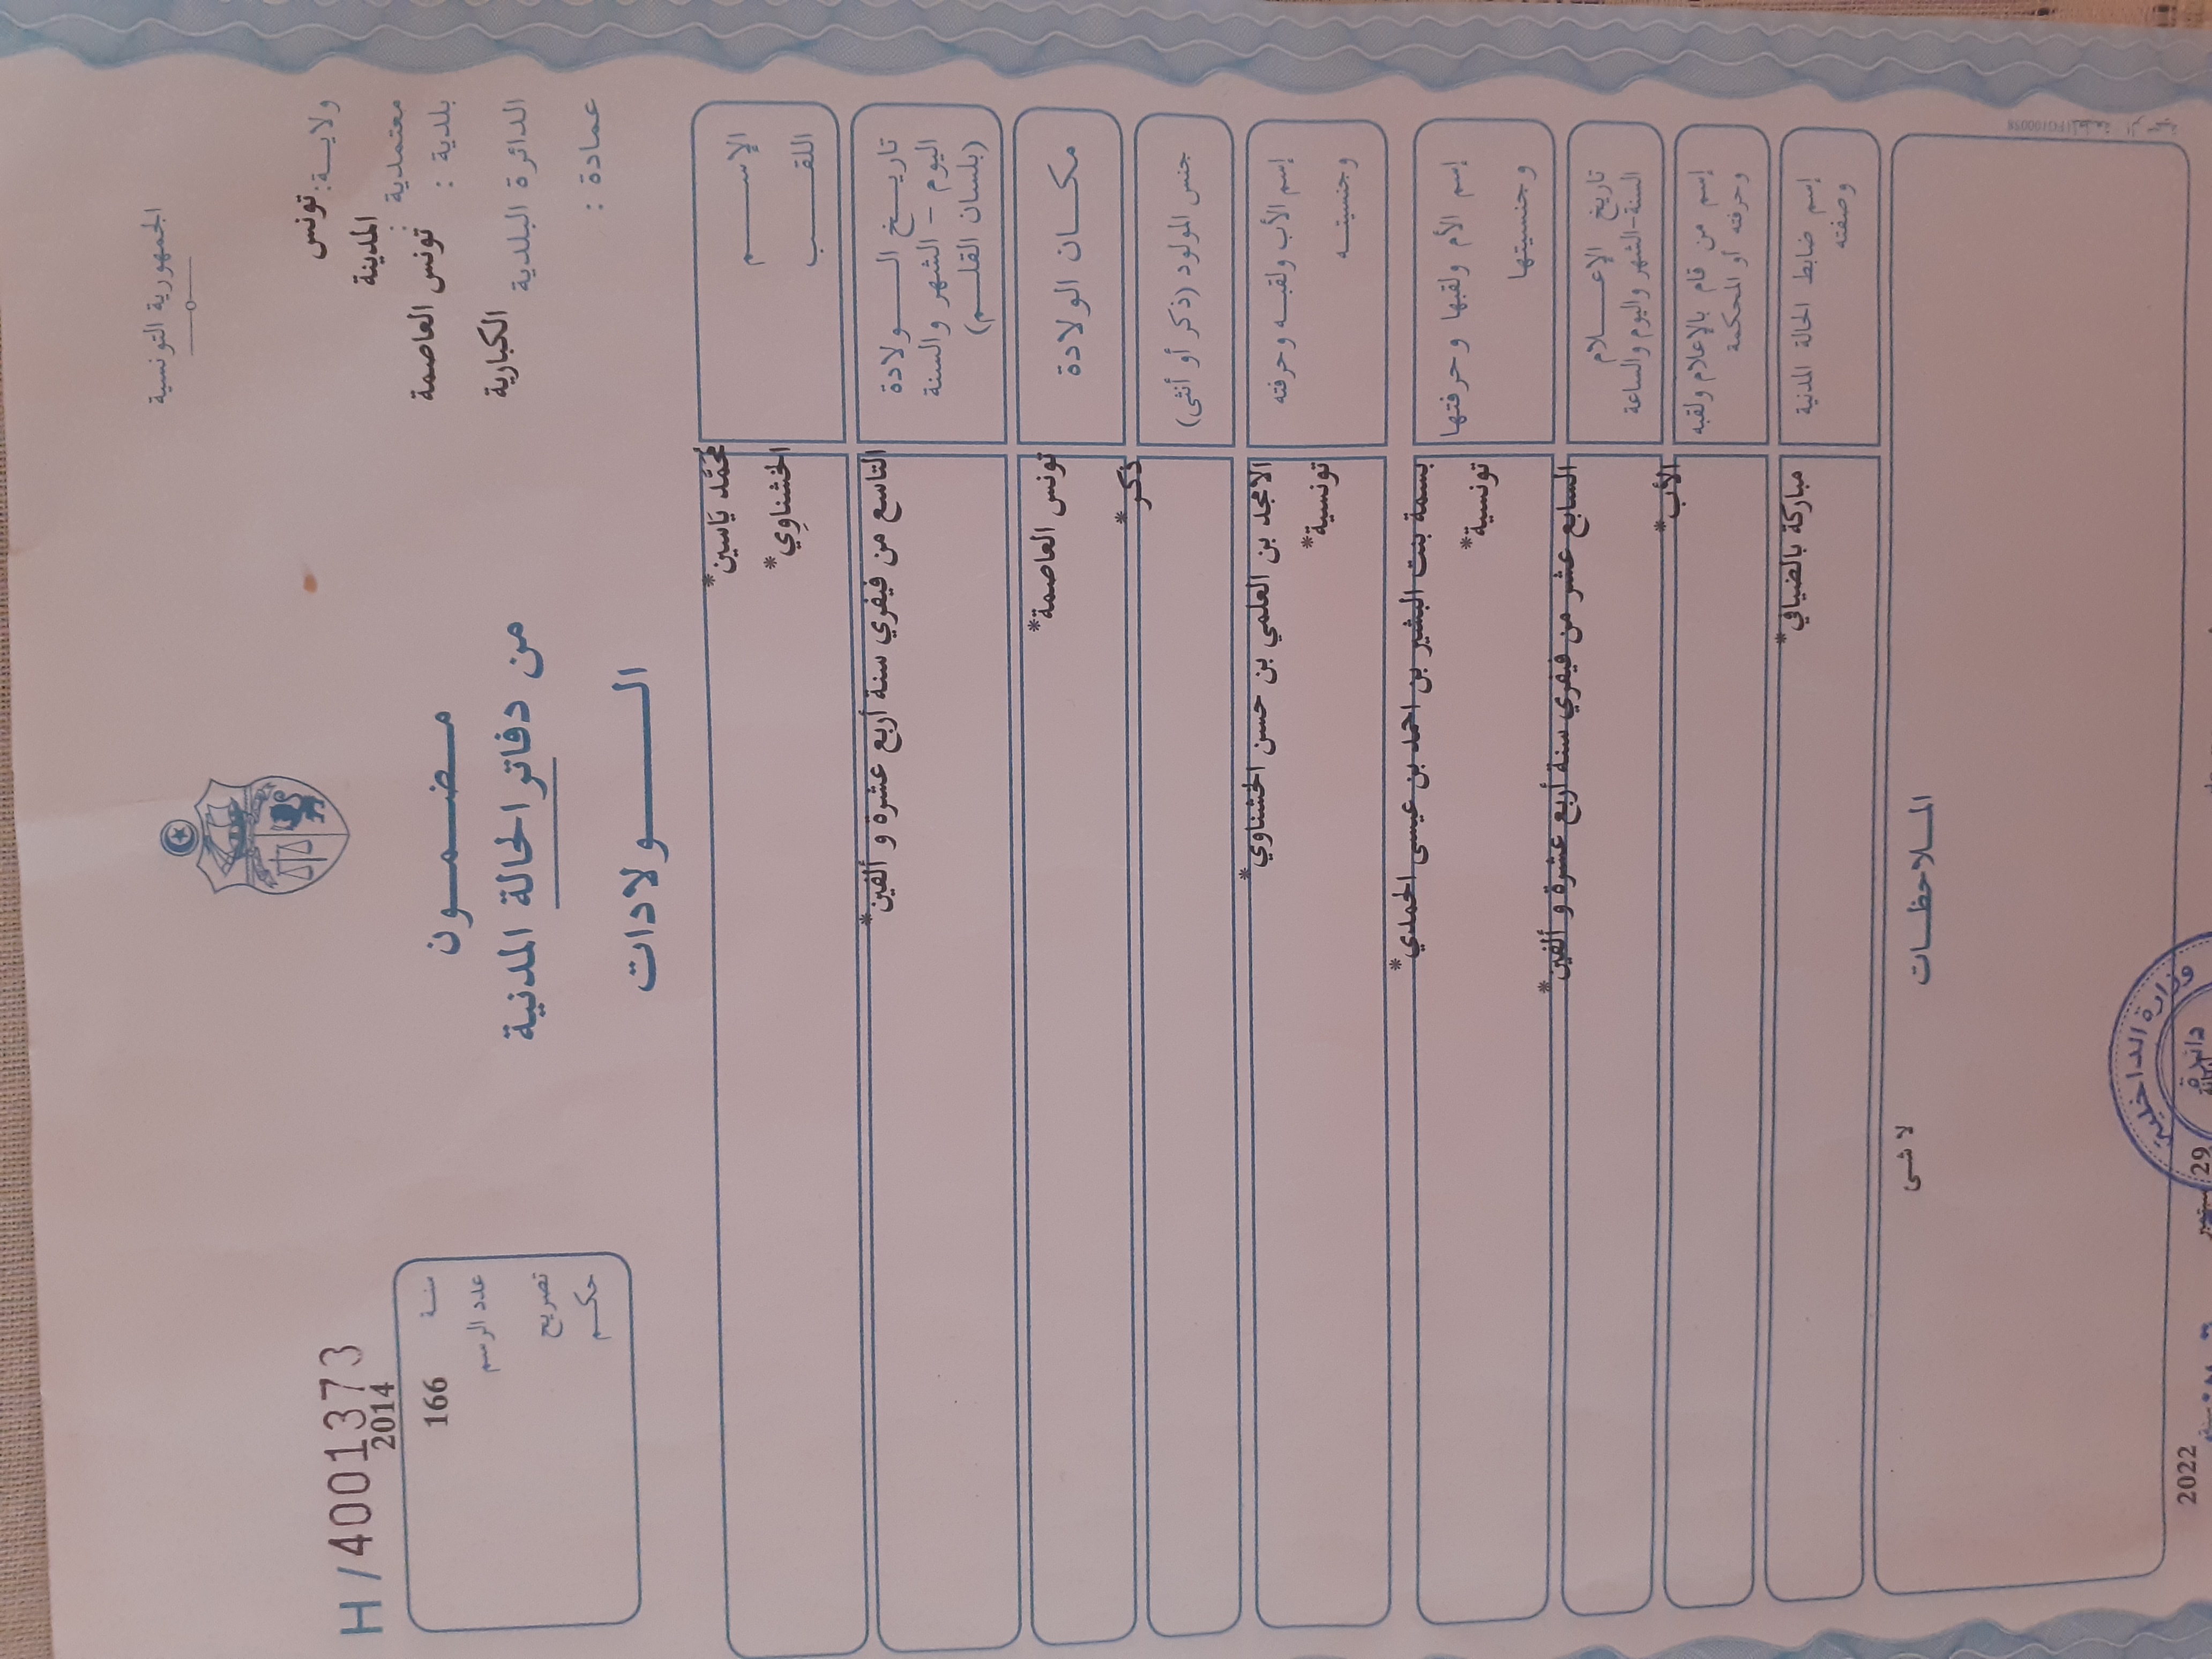 الجمهورية التونسية
ولايـــة: تونس
معتمدية : المدينة
بلدية : تونس العاصمة
الدائرة البلدية الكبارية
عمادة :
مضـــمـــون
من دفاتر الحالة المدنية
الـــــولادات
H/4001373
2014
سنـة
166
عدد الرسم
تصريح
حكـم
الإســـــم
محمّد ياسين*
اللقـــــب
الخشناوي*
تاريــخ الـــولادة
اليوم - الشهر والسنة
(بلسان القلـــم)
التاسع من فيفري سنة أربع عشرة و ألفين*
مكـــان الولادة
تونس العاصمة*
جنس المولود (ذكر أو أنثى)
ذكر*
إسم الأب ولقبــه وحرفته
الامجد بن العلمي بن حسن الخشناوي*
وجنسيتــه
تونسية*
إسم الأم ولقبها وحرفتها
بسمة بنت البشير بن احمد بن عيسى الحملدي*
وجنسيتها
تونسية*
تاريخ الإعـــلام
السنة-الشهر واليوم والساعة
السابع عشر من فيفري سنة أربع عشرة و ألفين*
إسم من قام بالإعلام ولقبه
وحرفته أو المحكمة
الأب*
إسم ضابط الحالة المدنية
وصفته
مباركة بالضيافي*
المـلاحظـــات
لا شى
وزارة الداخلية
دائرة
29 سبتمبر 2022